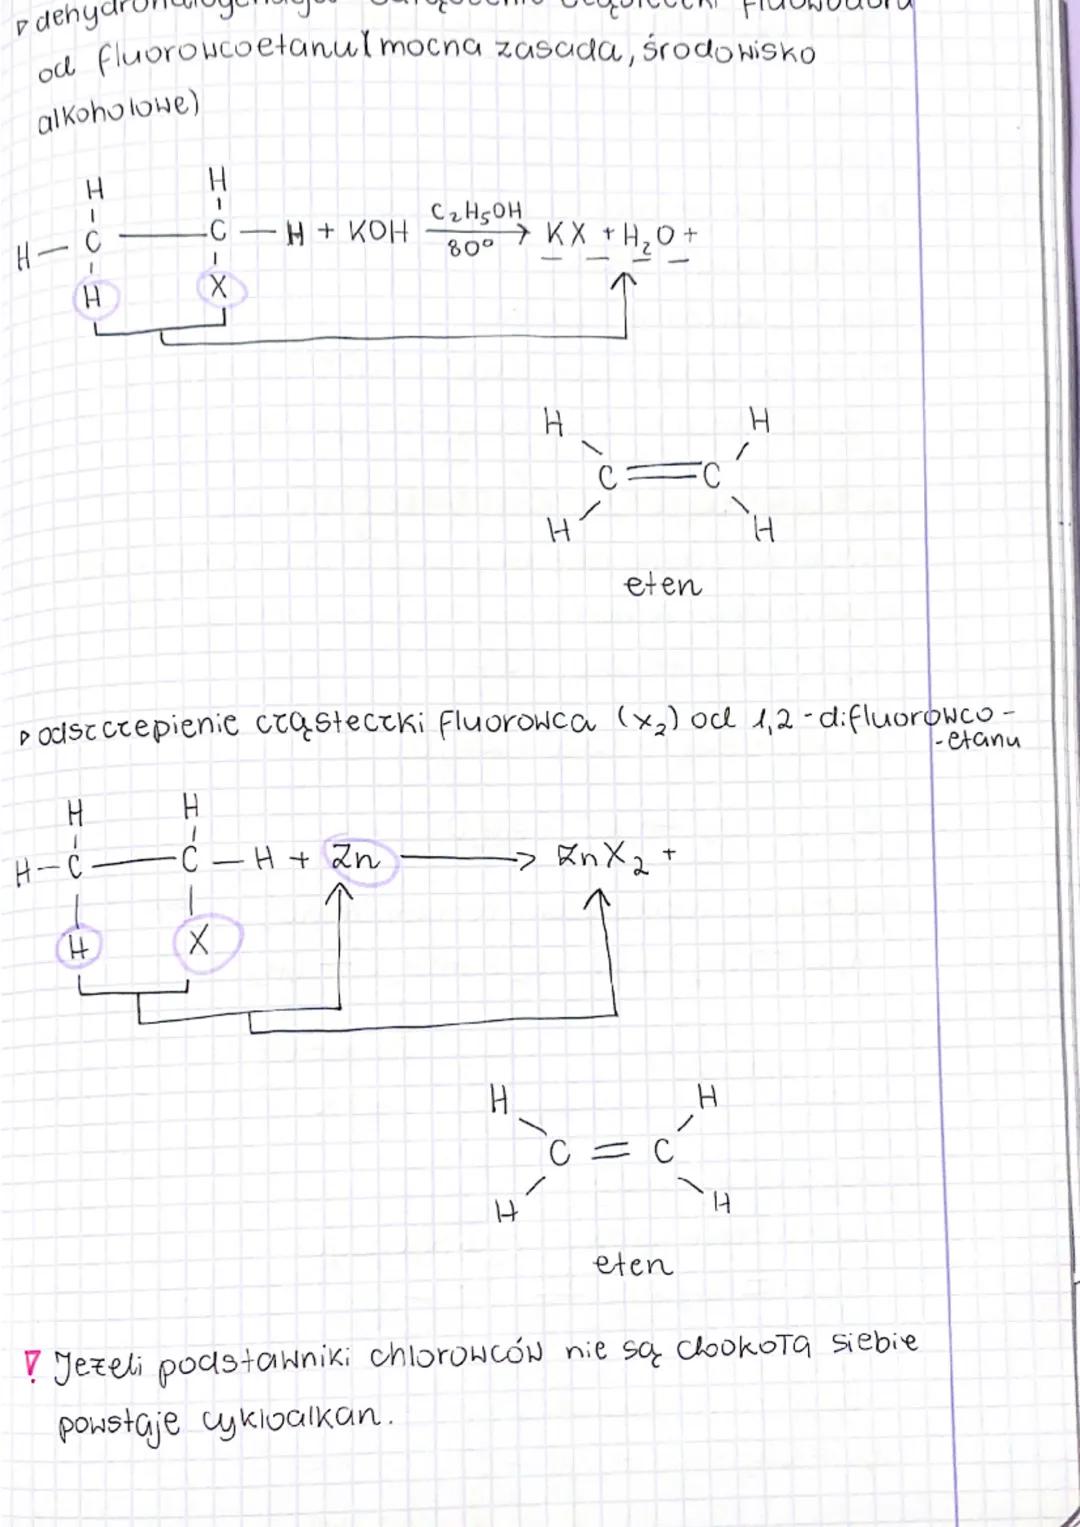 od fluorowcoetanu(mocna zasada, środowisko
alkoholowe)
H H
H — C — C — H + KOH C₂H₅OH 80° → KX + H₂O +
H X
H H
C = C
H H
eten
▹ odszczepienie cząsteczki fluorowca (x₂) od 1,2-difluorowco-
-etanu
H H
H — C — C — H + Zn → ZnX₂ +
H X
H H
C = C
H H
eten
Jeżeli podstawniki chlorowców nie są dookoła siebie
powstaje cykloalkan.